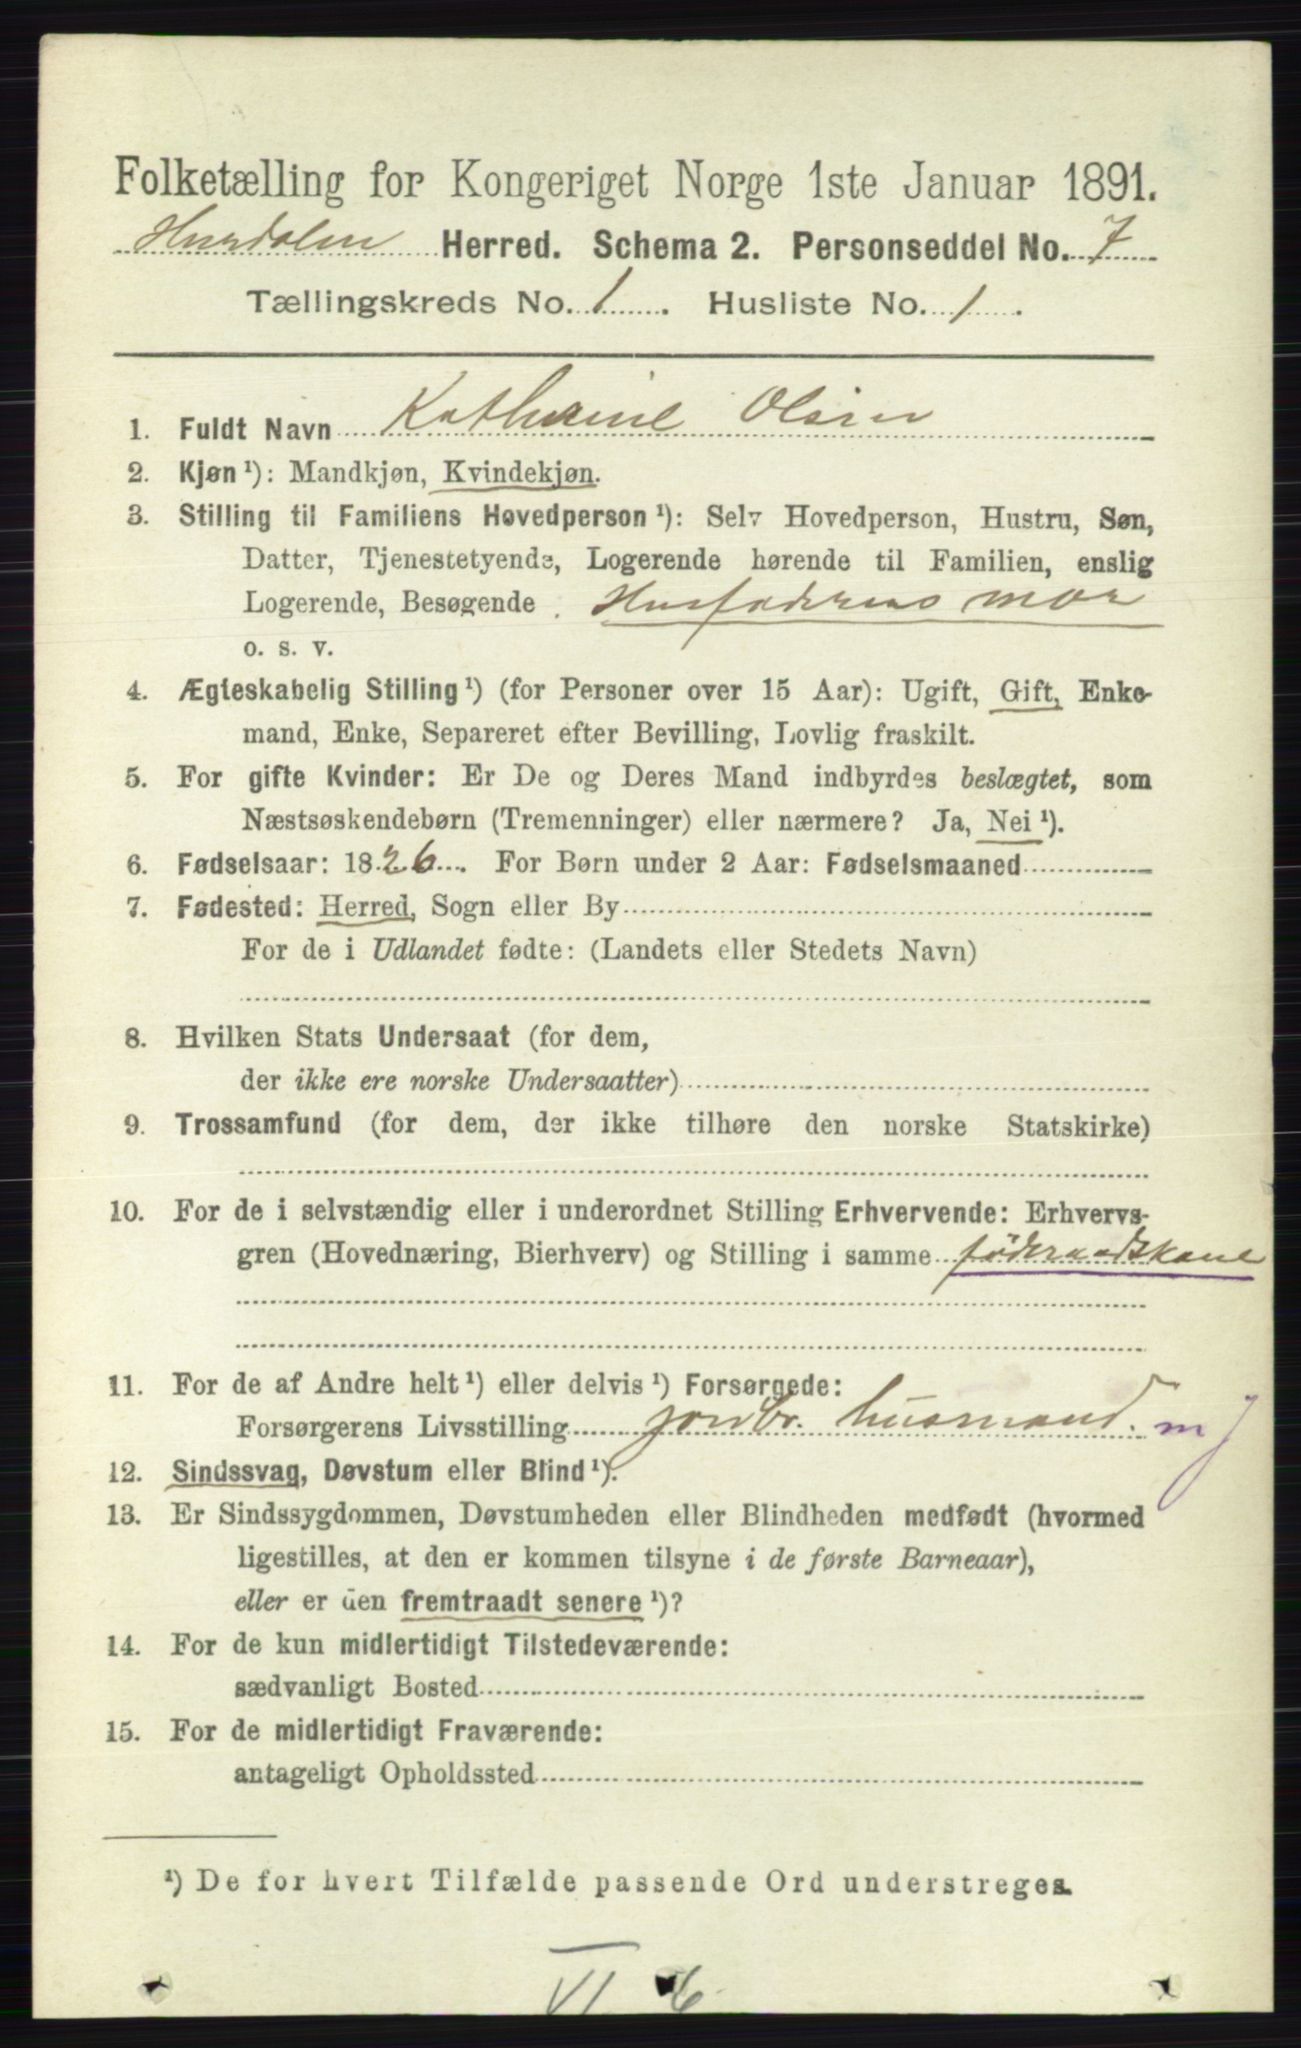 Folketælling for Kongeriget Norge 1ste Januar 1891.
Hurdalen Herred. Schema 2. Personseddel No. 7
Tællingskreds No. 1. Husliste No. 1.
1. Fuldt Navn Kathrine Olsen
2. Kjøn ¹): Mandkjøn, Kvindekjøn.
3. Stilling til Familiens Hovedperson ¹): Selv Hovedperson, Hustru, Søn,
Datter, Tjenestetyende, Logerende hørende til Familien, enslig
Logerende, Besøgende . Husfaderens mor
o. s. v.
4. Ægteskabelig Stilling ¹) (for Personer over 15 Aar): Ugift, Gift, Enke-
mand, Enke, Separeret efter Bevilling, Lovlig fraskilt.
5. For gifte Kvinder: Er De og Deres Mand indbyrdes beslægtet, som
Næstsøskendebørn (Tremenninger) eller nærmere? Ja, Nei ¹).
6. Fødselsaar: 1826. For Børn under 2 Aar: Fødselsmaaned
7. Fødested: Herred, Sogn eller By
For de i Udlandet fødte: (Landets eller Stedets Navn)
8. Hvilken Stats Undersaat (for dem,
der ikke ere norske Undersaatter)
9. Trossamfund (for dem, der ikke tilhøre den norske Statskirke)
10. For de i selvstændig eller i underordnet Stilling Erhvervende: Erhvervs-
gren (Hovednæring, Bierhverv) og Stilling i samme føderaadskone
11. For de af Andre helt ¹) eller delvis ¹) Forsørgede:
Forsørgerens Livsstilling jordbr. husmand. m J
12. Sindssvag, Døvstum eller Blind ¹).
13. Er Sindssygdommen, Døvstumheden eller Blindheden medfødt (hvormed
ligestilles, at den er kommen tilsyne i de første Barneaar),
eller er den fremtraadt senere ¹)?
14. For de kun midlertidigt Tilstedeværende:
sædvanligt Bosted
15. For de midlertidigt Fraværende:
antageligt Opholdssted
¹) De for hvert Tilfælde passende Ord understreges.
VI 6